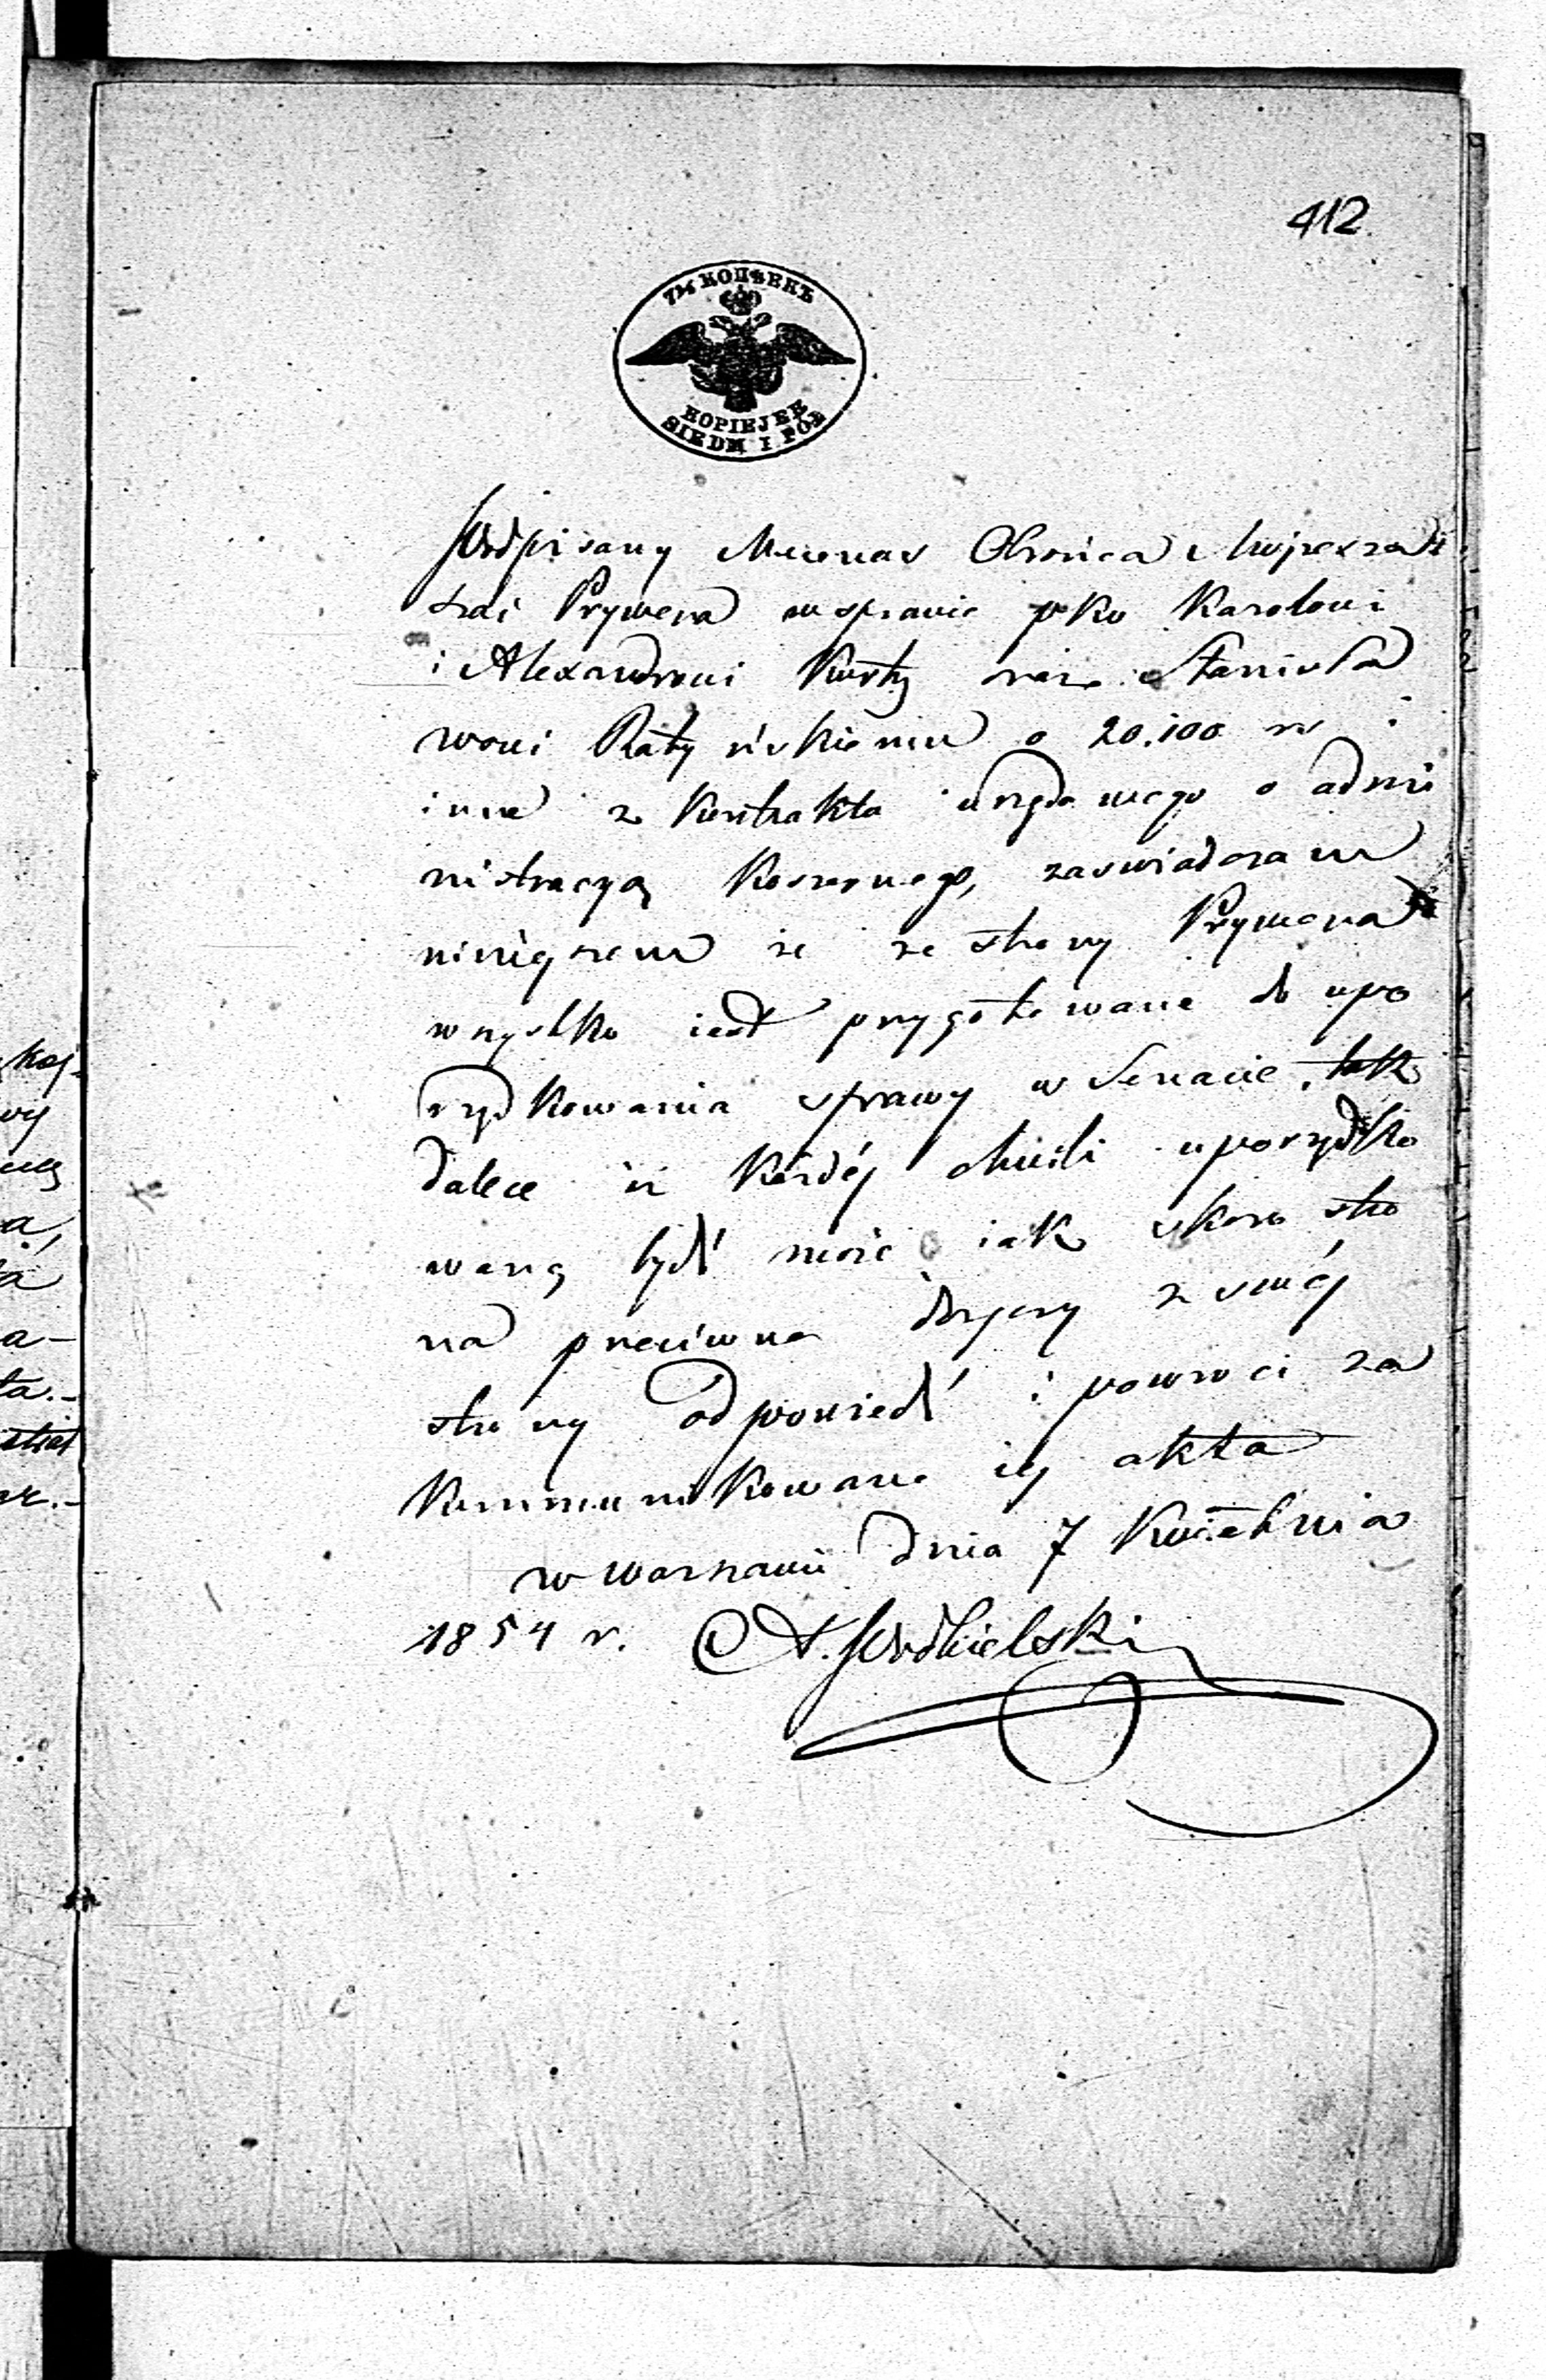 412.
7½ КОПѢЕКЪ
KOPIEJEK
SIEDM I PÓŁ
Podpisany Mecenas Obrońca Mojżesza
Prywera w sprawie pko Karolowi
i Alexandrowi Kurtz oraz Stanisła
wowi Ratyńskiemu o 20.100 rs i
inne z Kontraktu urzędowego o admi
nistracyą Koszernego, zaświadczam
ninieyszem że ze strony Prywera
wszystko iest przygotowane do upo
rządkowania sprawy w Senacie, tak
dalece iż każdéj chwili uporządko
waną bydź może iak skoro stro
na przeciwna doręczy z swéj
strony odpowiedź i powróci za
kommunikowane iéj akta
w Warszawie dnia 7 Kwietnia
1854 r. A. Podbielski